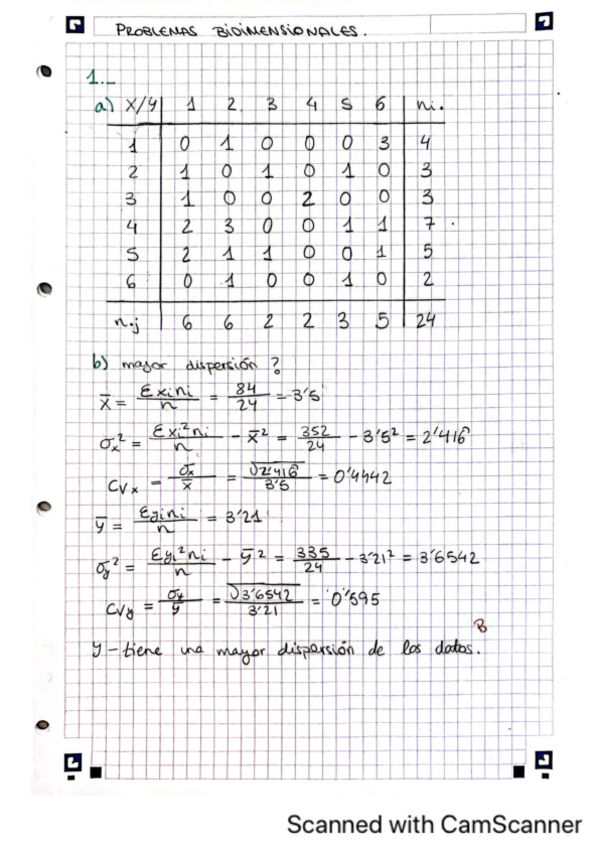 PROBLEMAS BIDIMENSIONALES.
1._
a) X/Y 1 2. 3 4 5 6 ni.
1 0 1 0 0 0 3 4
2 1 0 1 0 1 0 3
3 1 0 0 2 0 0 3
4 2 3 0 0 1 1 7
5 2 1 1 0 0 1 5
6 0 1 0 0 1 0 2
n.j 6 6 2 2 3 5 24
b) mayor dispersión ?
x̄ = Σxini / n = 84/24 = 3'5
σx² = Σxi²ni / n - x̄² = 352/24 - 3'5² = 2'416̂
CVx = σx / x̄ = √2'416̂ / 3'5 = 0'4442
ȳ = Σyini / n = 3'21
σy² = Σyi²ni / n - ȳ² = 335/24 - 3'21² = 3'6542
CVy = σy / ȳ = √3'6542 / 3'21 = 0'595
B
y - tiene una mayor dispersión de los datos.
Scanned with CamScanner